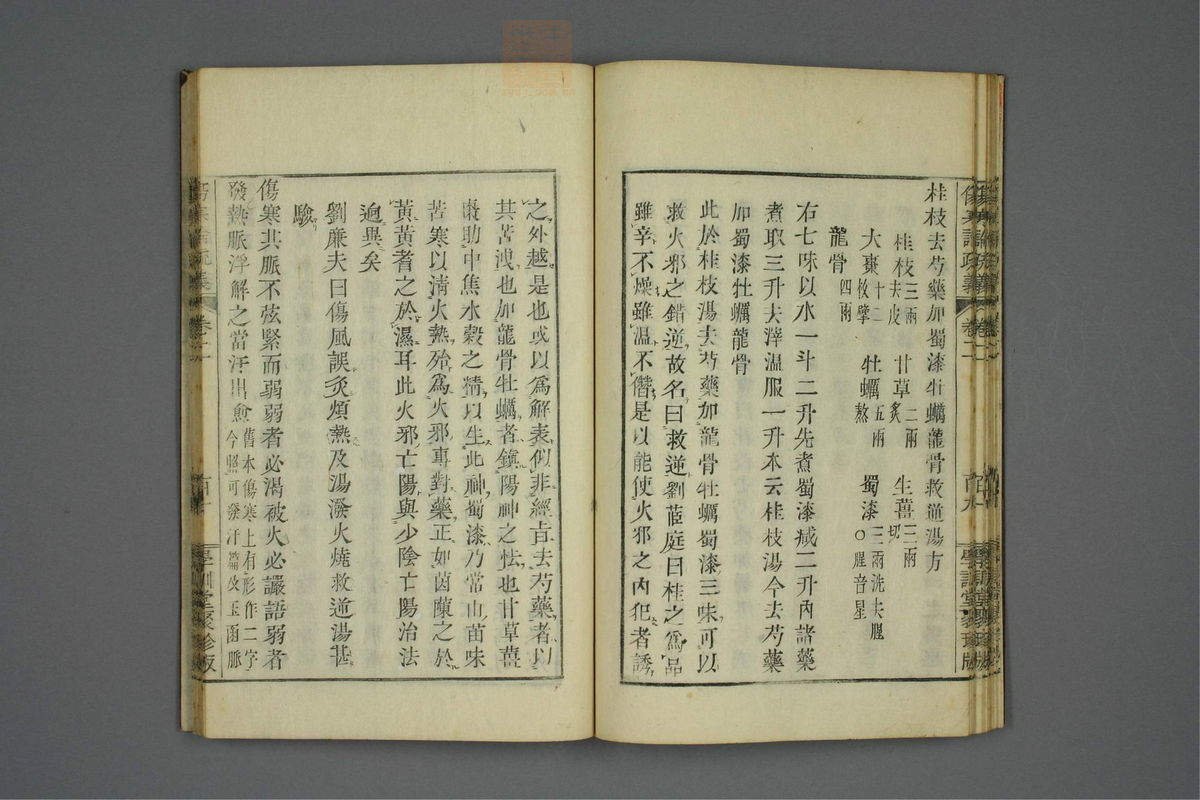 桂枝去芍藥加蜀漆牡蠣龍骨救逆湯方
桂枝三兩去皮 甘草二兩炙 生薑三兩切
大棗十二枚擘 牡蠣五兩熬 蜀漆三兩洗去腥○腥音星
龍骨四兩
右七味以水一斗二升先煮蜀漆減二升內諸藥
煮取三升去滓温服一升本云桂枝湯今去芍藥
加蜀漆牡蠣龍骨
此於桂枝湯去芍藥加龍骨牡蠣蜀漆三味可以
救火邪之錯逆故名曰救逆劉茝庭曰桂之為品
雖辛不燥雖温不僭是以能使火邪之內犯者誘
之外越是也或以爲解表似非經旨去芍藥者以
其苦洩也加龍骨牡蠣者鎮陽神之怯也甘草薑
棗助中焦水穀之精以生此神蜀漆乃常山苗味
苦寒以清火熱殆爲火邪專對藥正如茵蔯之於
黃黃耆之於濕耳此火邪亡陽與少陰亡陽治法
逈異矣
劉廉夫曰傷風誤灸煩熱及湯潑火燒救逆湯甚
驗
傷寒其脈不弦緊而弱弱者必渴被火必讝語弱者
發熱脈浮解之當汗出愈舊本傷寒上有形作二字今照可發汗篇及玉函脈
傷寒論疏義 卷二
學訓堂聚珍版